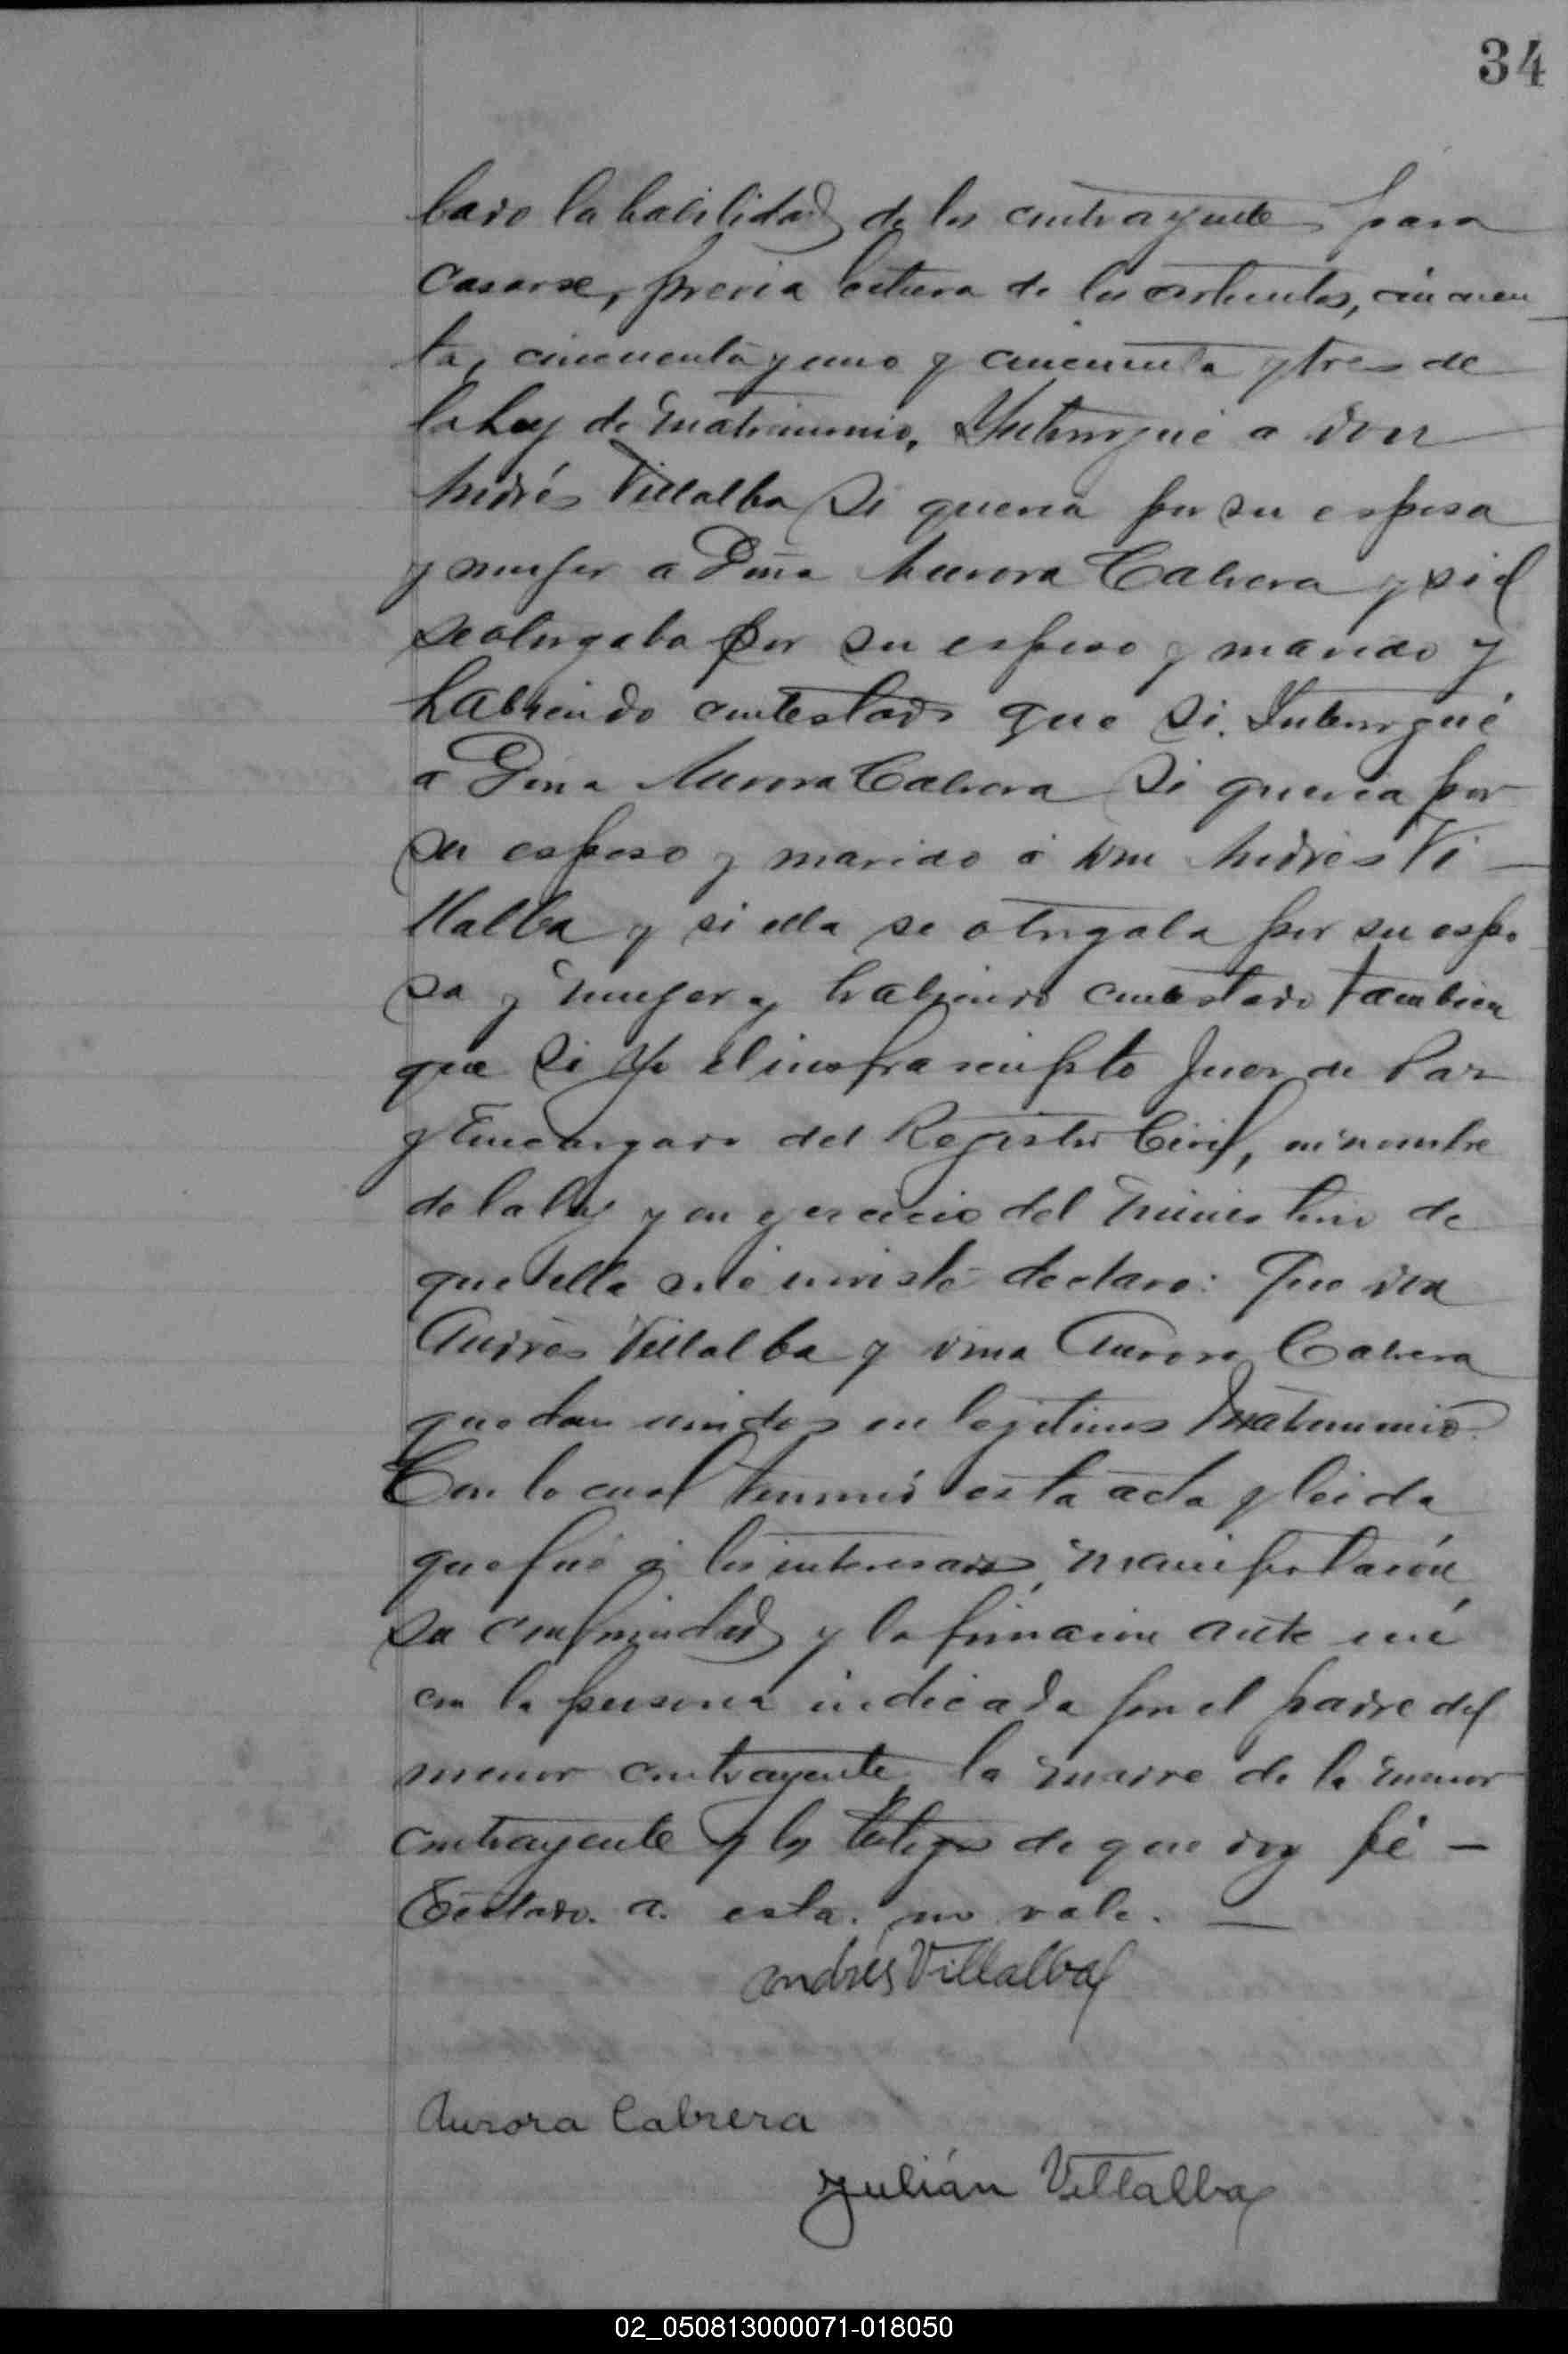 34
bado la habilidad de los contrayentes para
casarse, previa lectura de los articulos, cincuen
ta, cincuenta y uno y cincuenta y tres de
la Ley de Matrimonio, Interrogué a don
Andrés Villalba si queria por su esposa
y mujer a Doña Aurora Cabrera y si el
se otorgaba por su esposo y marido y
habiendo contestado que si. Interrogué
a Doña Aurora Cabrera si queria por
su esposo y marido á don Andrés Vi
llalba y si ella se otorgaba por su espo
sa y mujer y habiendo contestado tambien
que si Yo el infrascripto Juez de Paz
y Encargado del Registro Civil, en nombre
de la ley y en ejercicio del ministerio de
que ella me inviste declaro: Que don
Andrés Villalba y doña Aurora Cabrera
quedan unidos en legitimo Matrimonio.
Con lo cual terminó esta acta y leida
que fué á los interesados, manifestaron
su conformidad y la firmaron ante mí
con la persona indicada por el padre del
menor contrayente, la madre de la menor
contrayente y los testigos de que doy fé —
Testado. a. esta. no vale. —
Andrés Villalba
Aurora Cabrera
Julián Villalba
02_050813000071-018050